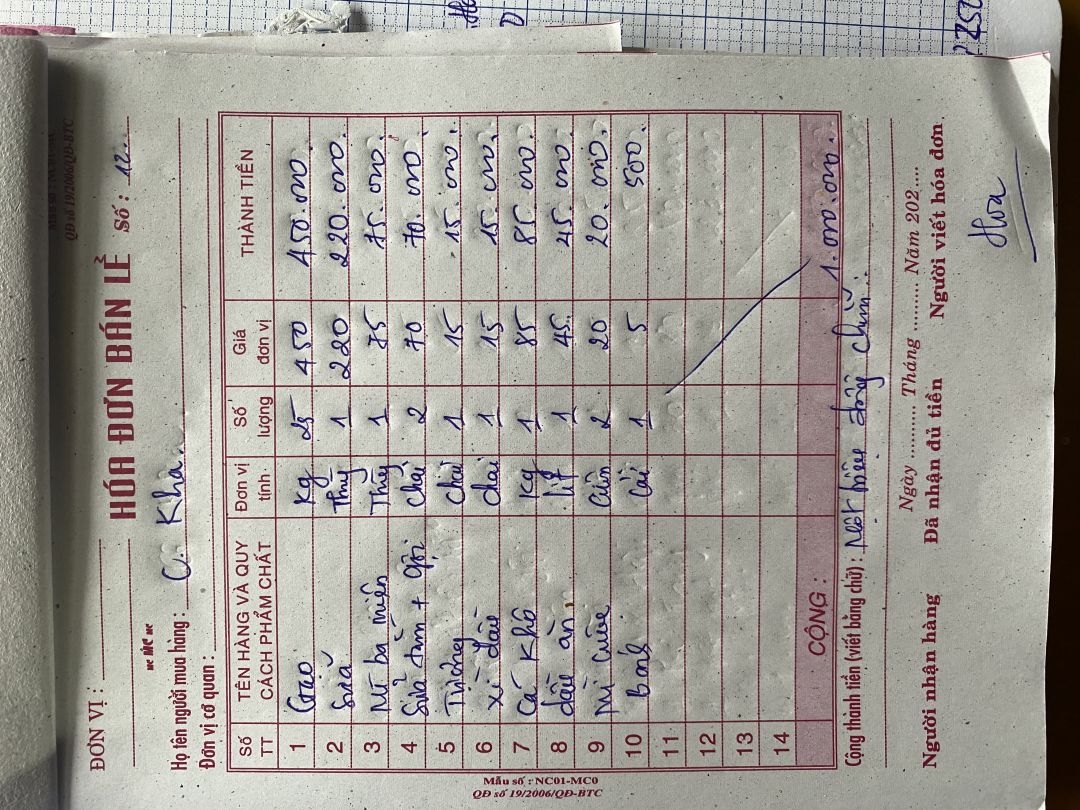 QĐ số 19/2006/QĐ-BTC
ĐƠN VỊ :
HÓA ĐƠN BÁN LẺ Số : 12
Họ tên người mua hàng : C. Khoa
Đơn vị cơ quan :
Số TT TÊN HÀNG VÀ QUY CÁCH PHẨM CHẤT Đơn vị tính Số lượng Giá đơn vị THÀNH TIỀN
1 Gạo Kg 25 450 450.000
2 Sữa Thùg 1 220 220.000
3 Mì ba miền Thùg 1 75 75.000
4 Sữa tắm + gội chai 2 70 70.000
5 Tương chai 1 15 15.000
6 xì dầu chai 1 15 15.000
7 Cá khô Kg 1 85 85.000
8 dầu ăn lít 1 45 45.000
9 2 20 20.000
10 cái 1 5 500
11
12
13
14
CỘNG : 1.000.000
Cộng thành tiền (viết bằng chữ) : Một triệu đồng chẵn
Ngày ......... Tháng ......... Năm 202 ....
Người nhận hàng Đã nhận đủ tiền Người viết hóa đơn
Hoa
Mẫu số : NC01-MC0
QĐ số 19/2006/QĐ-BTC
250